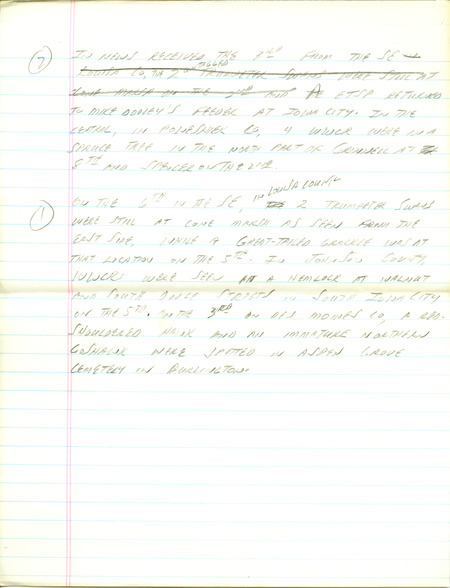 2 IN NEWS RECEIVED THE 3RD FROM THE SE
LOUISA CO, THE 2 TAGGED TRUMPETER SWANS WERE STILL AT
CONE MARSH ON THE 2ND AND A ETSP RETURNED
TO MIKE DOOLEY'S FEEDER AT IOWA CITY. IN THE
CENTRAL, IN POWESHIEK CO, 4 WWCR WERE IN A
SPRUCE TREE IN THE NORTH PART OF GRINNELL AT
8TH AND SPENCER ON THE 2ND.
1 ON THE 6TH IN THE SE, IN LOUISA COUNTY 2 TRUMPETER SWANS
WERE STILL AT CONE MARSH AS SEEN FROM THE
EAST SIDE, WHILE A GREAT-TAILED GRACKLE WAS AT
THAT LOCATION ON THE 5TH. IN JOHNSON COUNTY,
WWCR WERE SEEN AT A HEMLOCK AT WALNUT
AND SOUTH DODGE STREETS IN SOUTH IOWA CITY
ON THE 5TH. ON THE 3RD IN DES MOINES CO, A RED-
SHOULDERED HAWK AND AN IMMATURE NORTHERN
GOSHAWK WERE SPOTTED IN ASPEN GROVE
CEMETERY IN BURLINGTON.